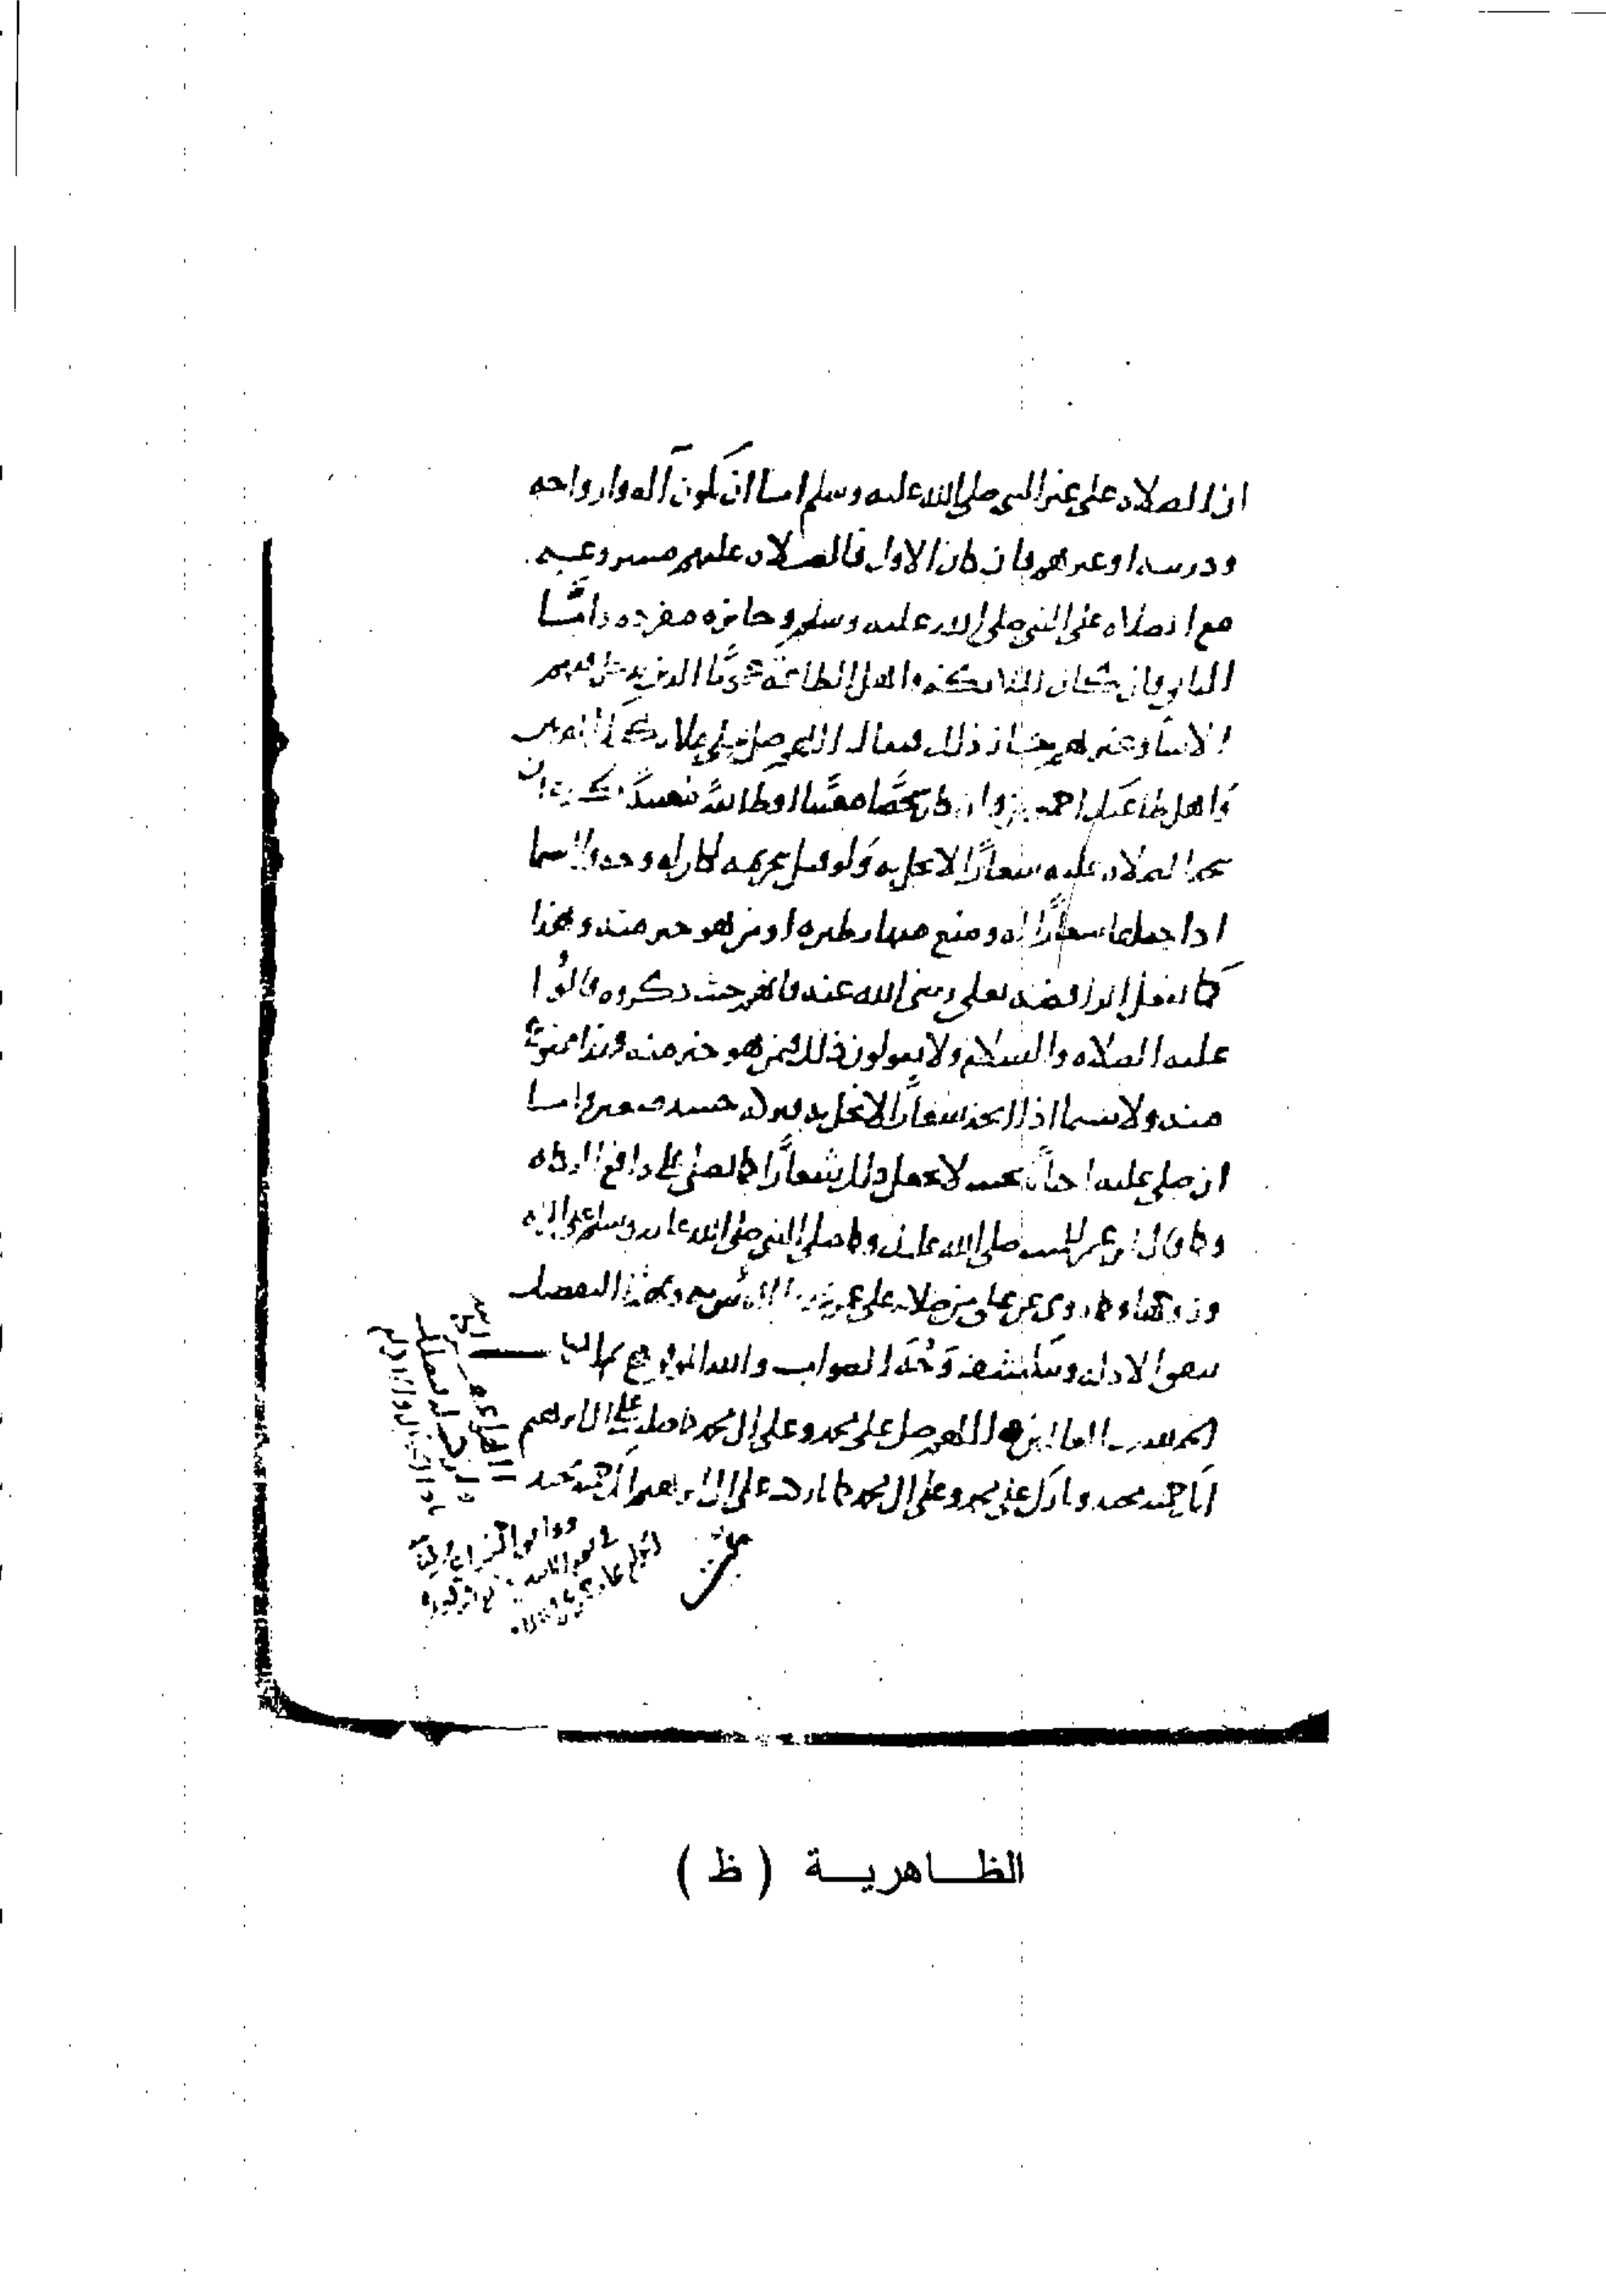 ان الصلاة على غير النبي صلى الله عليه وسلم اما ان يكون آله وازواجه
وذريته او غيرهم فان كان الاول فالصلاة عليهم مشروعة
مع الصلاة على النبي صلى الله عليه وسلم وجائزه مفرده واما
الثاني فان كان الملائكة واهل الطاعة عموما الذين يدخل فيهم
الانبيا وغيرهم جاز ذلك فيقال اللهم صل على ملائكتك المقربين
واهل طاعتك اجمعين وان كان شخصا معينا او طائفة معينة كره ان
الصلاة عليه شعارا لا يخل به ولو قيل بتحريمه لكان له وجه ولا سيما
اذا جعلها شعارا له ومنع منها نظيره او من هو خير منه وهذا
كما تفعل الرافضة بعلي رضي الله عنه فانهم حيث ذكروه قالوا
عليه الصلاه والسلام ولا يقولون ذلك فيمن هو خير منه فهذا ممنوع
منه ولا سيما اذا اتخذ شعارا لا يخل به فتركه حينئذ متعين واما
ان صلى عليه احيانا بحيث لا يجعل ذلك شعارا كما صلى على دافع الزكاه
وكما قال ابن عمر للميت صلى الله عليه وكما صلى النبي صلى الله عليه وسلم على المرأه
وزوجها وكما روي عن علي من صلاته على عمر فهذا لا باس به وبهذا التفصيل
تتفق الادلة وينكشف وجه الصواب والله الموفق
الحمد لله رب العالمين اللهم صل على محمد وعلى آل محمد كما صليت على آل ابرهيم
انك حميد مجيد وبارك على محمد وعلى آل محمد كما باركت على آل ابرهيم انك حميد مجيد
الظاهرية ( ظ )